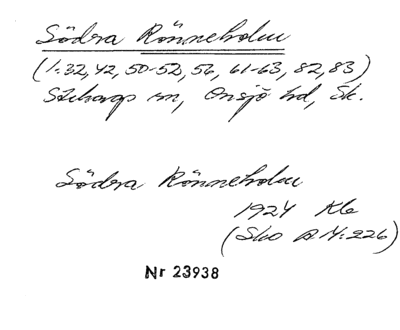 Södra Rönneholm
(1:32, 42, 50-52, 56, 61-63, 82, 83)
Stehags sn, Onsjö hd, Sk.
Södra Rönneholm
1924 Kle
(Sko A 14:226)
Nr 23938